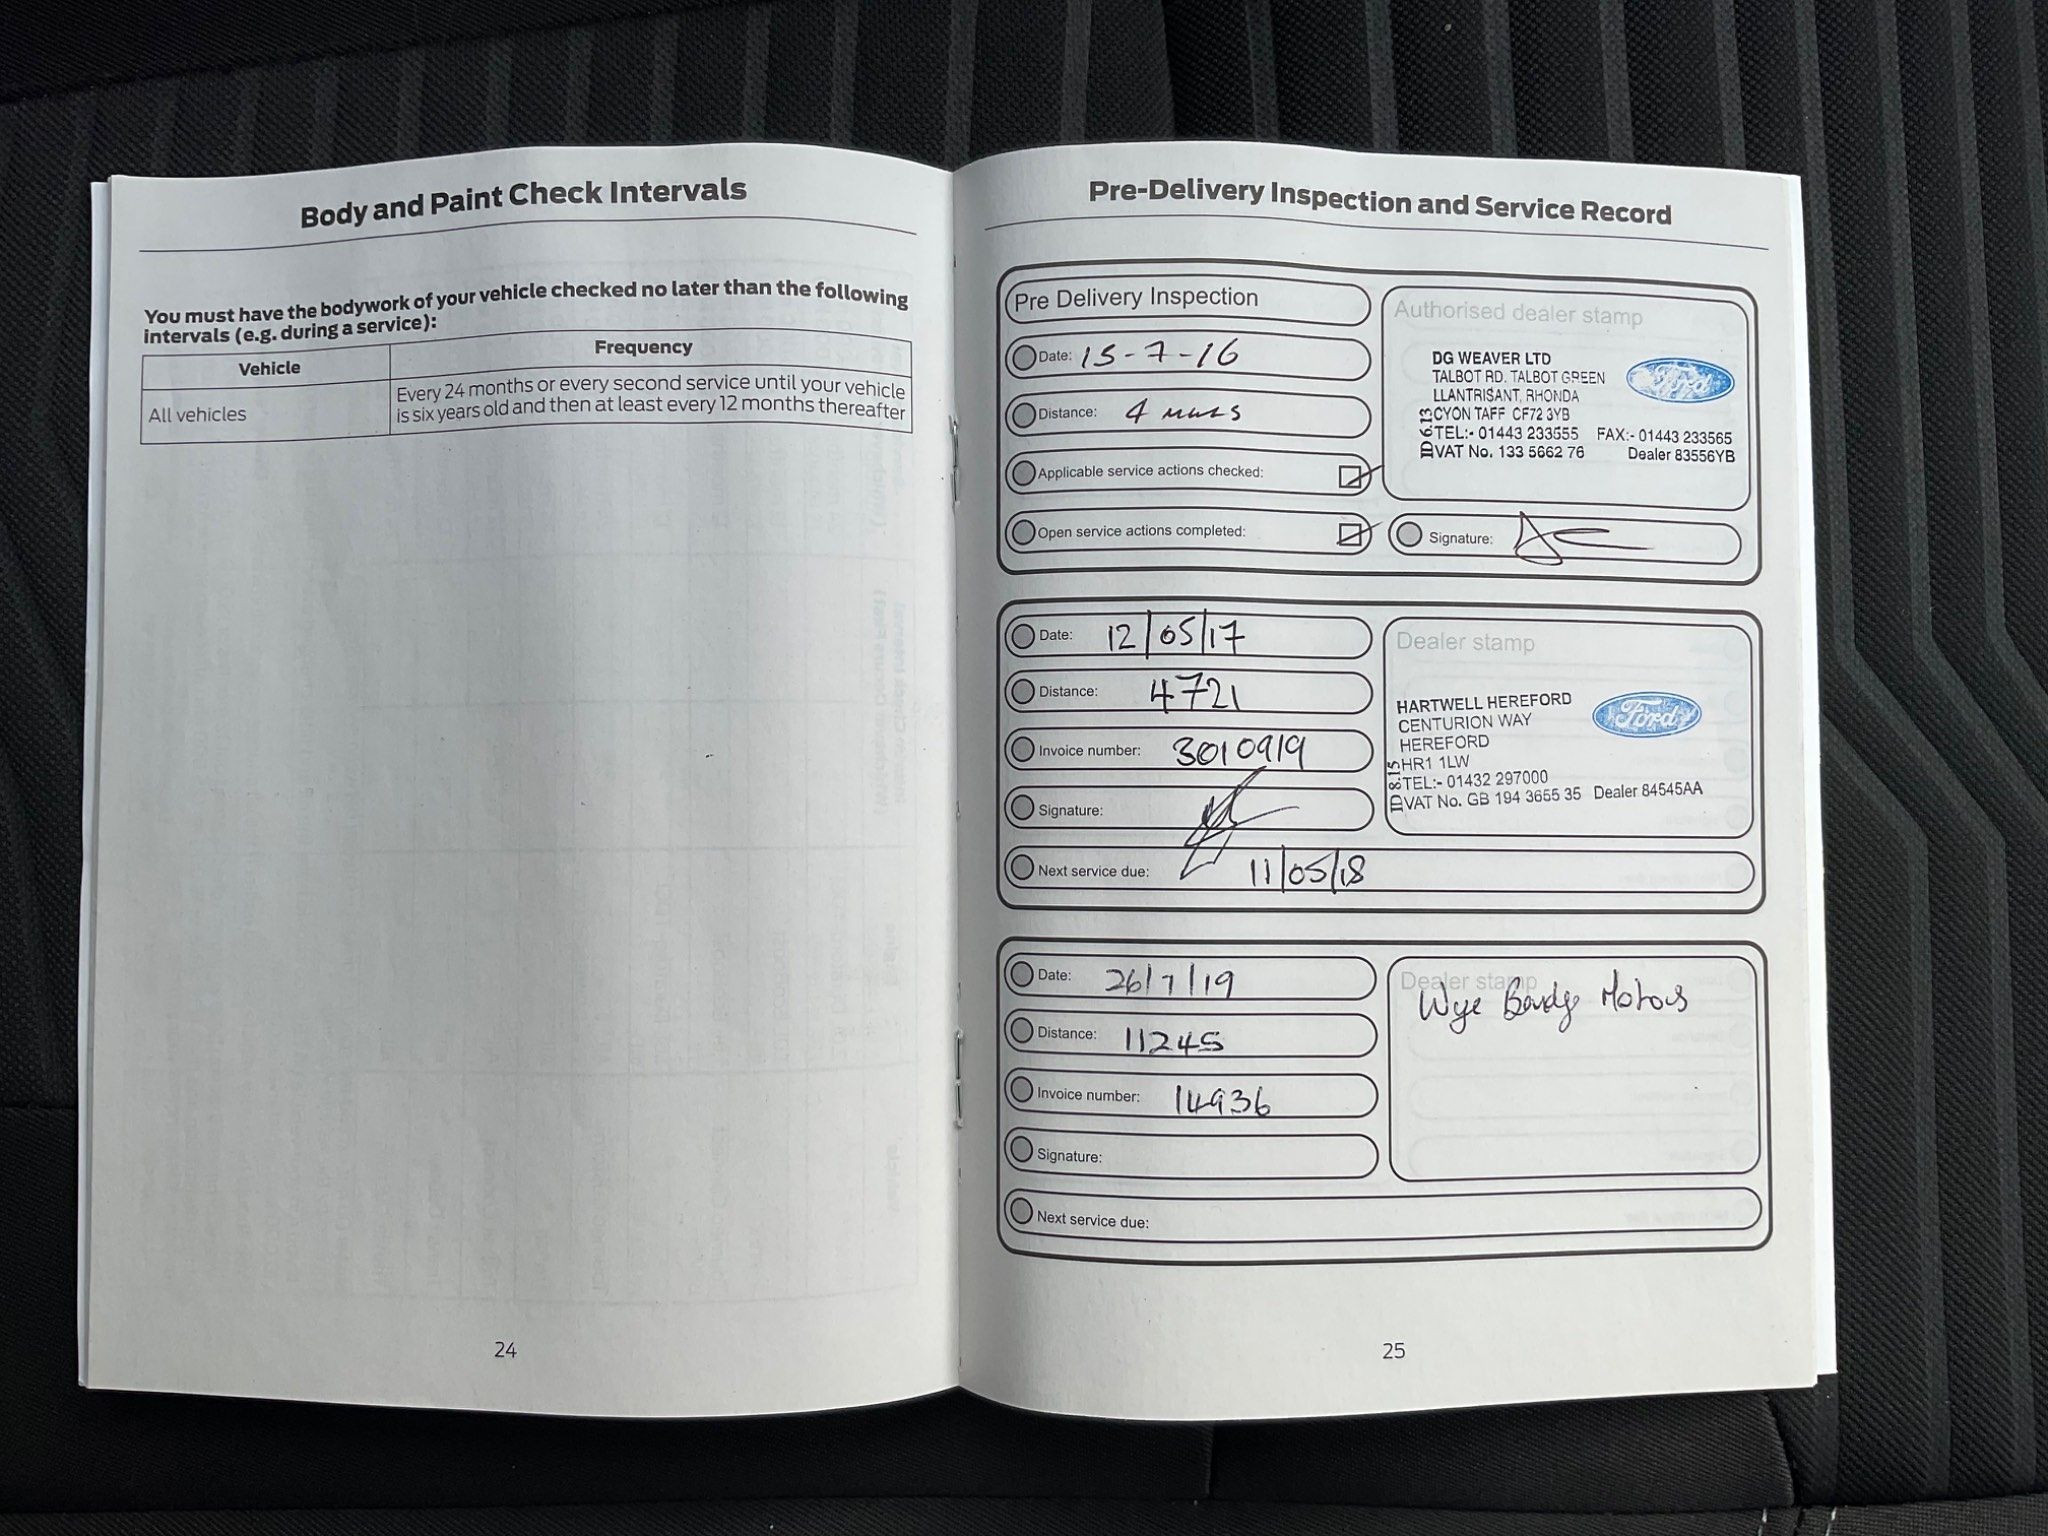 Body and Paint Check Intervals
You must have the bodywork of your vehicle checked no later than the following
intervals (e.g. during a service):
Vehicle
Frequency
All vehicles
Every 24 months or every second service until your vehicle
is six years old and then at least every 12 months thereafter
24
Pre-Delivery Inspection and Service Record
Pre Delivery Inspection
Date: 15-7-16
Distance: 4 miles
Applicable service actions checked:
Open service actions completed:
Authorised dealer stamp
DG WEAVER LTD
TALBOT RD. TALBOT GREEN
LLANTRISANT, RHONDA
CYON TAFF CF72 3YB
TEL:- 01443 233555 FAX:- 01443 233565
VAT No. 133 5662 76 Dealer 83556YB
ID 6.13
Ford
Signature:
Date: 12/05/17
Distance: 4721
Invoice number: 3010919
Signature:
Next service due: 11/05/18
Dealer stamp
HARTWELL HEREFORD
CENTURION WAY
HEREFORD
HR1 1LW
TEL:- 01432 297000
VAT No. GB 194 3655 35 Dealer 84545AA
ID 8.15
Ford
Date: 26/7/19
Distance: 11245
Invoice number: 14936
Signature:
Next service due:
Dealer stamp
Wye Motors
25